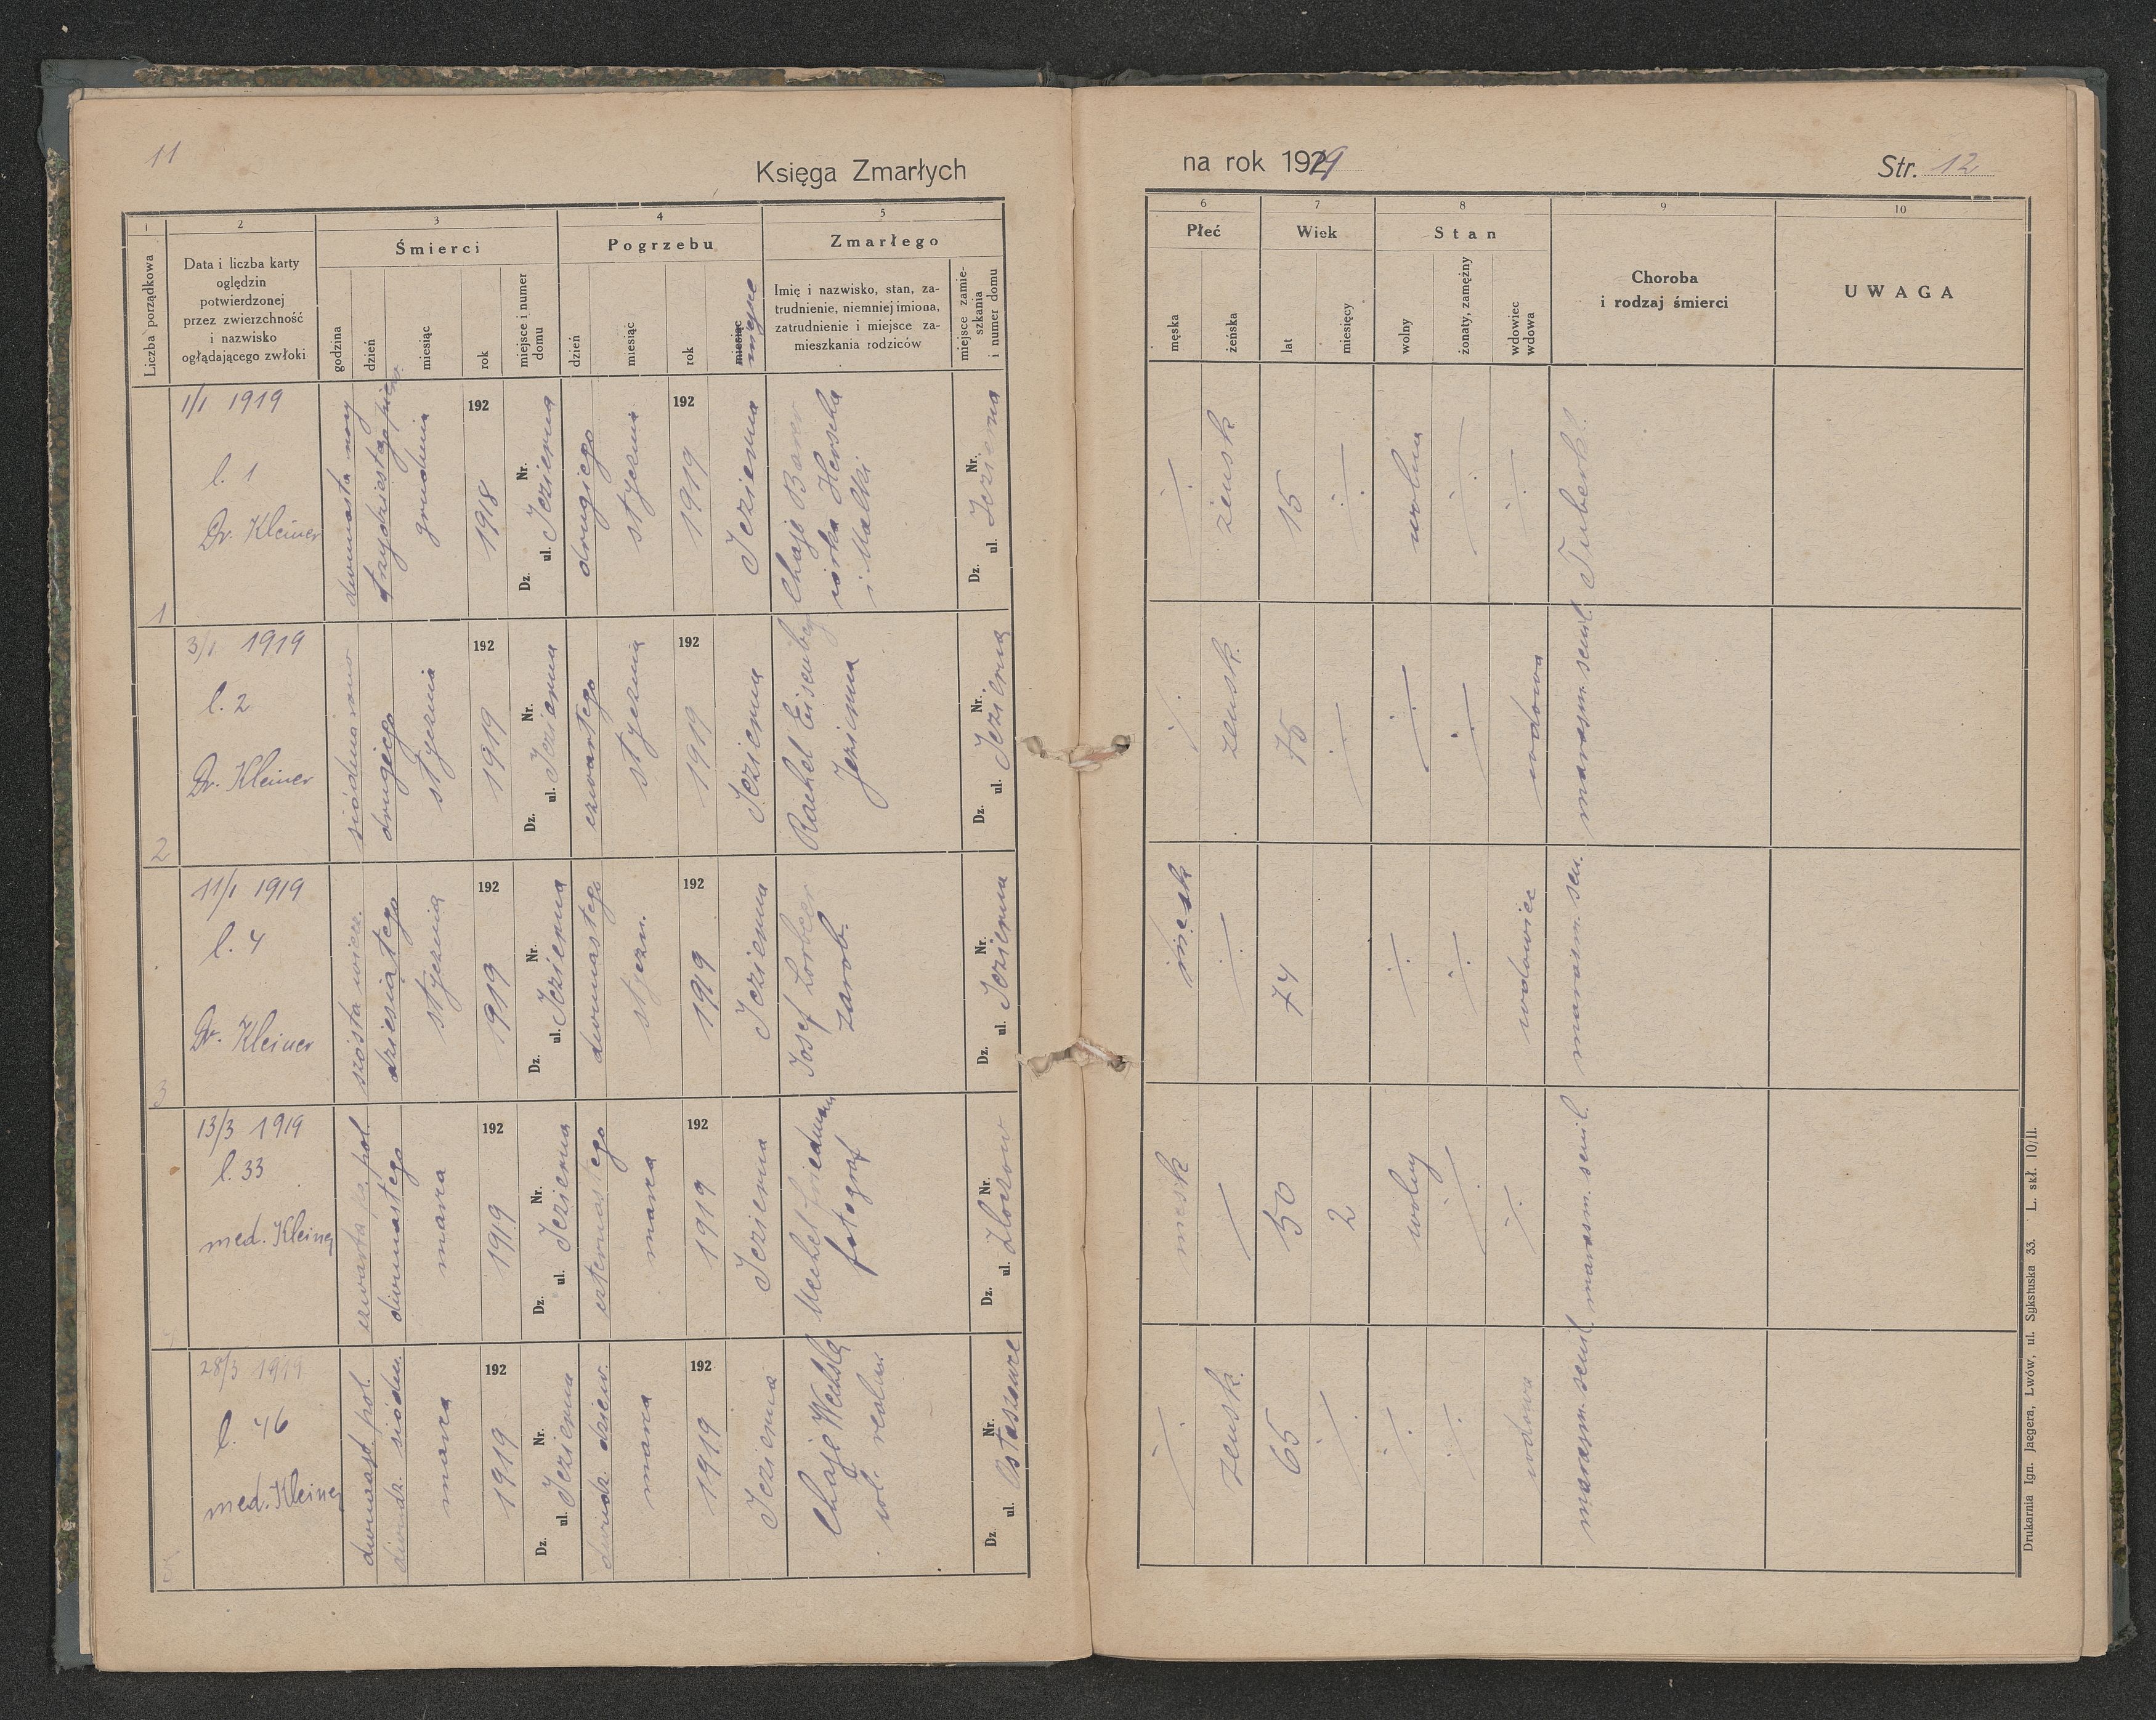 11
Księga Zmarłych
1
2
3
4
5
Liczba porządkowa
Data i liczba karty
oględzin
potwierdzonej
przez zwierzchność
i nazwisko
oglądającego zwłoki
Śmierci
godzina
dzień
miesiąc
rok
miejsce i numer
domu
Pogrzebu
dzień
miesiąc
rok
miesiąc
miejsce
Zmarłego
Imię i nazwisko, stan, za-
trudnienie, niemniej imiona,
zatrudnienie i miejsce za-
mieszkania rodziców
miejsce zamie-
szkania
i numer domu
1
1/1 1919
l. 1
Dr. Kleiner
dwunasta
trzydziestego
grudnia
192
1918
Dz. ul. Nr.
Jezierna
drugiego
stycznia
192
1919
Jezierna
Chaje
córka Herscha
i Malki
Dz. ul. Nr.
Jezierna
2
3/1 1919
l. 2
Dr. Kleiner
siódma rano
drugiego
stycznia
192
1919
Dz. ul. Nr.
Jezierna
czwartego
stycznia
192
1919
Jezierna
Rachel Eisenberg
Jezierna
Dz. ul. Nr.
Jezierna
3
11/1 1919
l. 4
Dr. Kleiner
szósta wiecz.
dziesiątego
stycznia
192
1919
Dz. ul. Nr.
Jezierna
dwunastego
styczn.
192
1919
Jezierna
Josef Lorbeer
zarob.
Dz. ul. Nr.
Jezierna
13/3 1919
l. 33
med. Kleiner
czwarta po poł.
dwunastego
marca
192
1919
Dz. ul. Nr.
Jezierna
czternastego
marca
192
1919
Jezierna
Mechel Friedmann
fotograf
Dz. ul. Nr.
Złoczow
28/3 1919
l. 46
med. Kleiner
dwunast. poł.
dwudz. siódm.
marca
192
1919
Dz. ul. Nr.
Jezierna
dwudz. dziew.
marca
192
1919
Jezierna
Chaje
Dz. ul. Nr.
na rok 1919
Str. 12
6
7
8
9
10
Płeć
męska
żeńska
Wiek
lat
miesięcy
Stan
wolny
żonaty, zamężny
wdowiec
wdowa
Choroba
i rodzaj śmierci
UWAGA
żeńsk
15
wolna
Tuberkul.
żeńsk.
75
wdowa
marasm. senil.
męsk
74
wdowiec
marasm. sen.
męsk
50
2
wolny
marasm. senil.
żeńsk.
65
wdowa
marasm. senil.
Drukarnia Ign. Jaegera, Lwów, ul. Sykstuska 33. L. skł. 10/II.